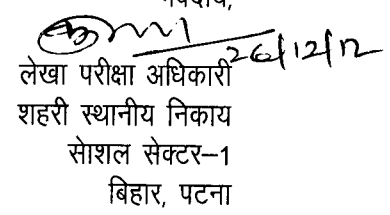 26/12/12
लेखा परीक्षा अधिकारी
शहरी स्थानीय निकाय
सेाशल सेक्टर–1
बिहार, पटना